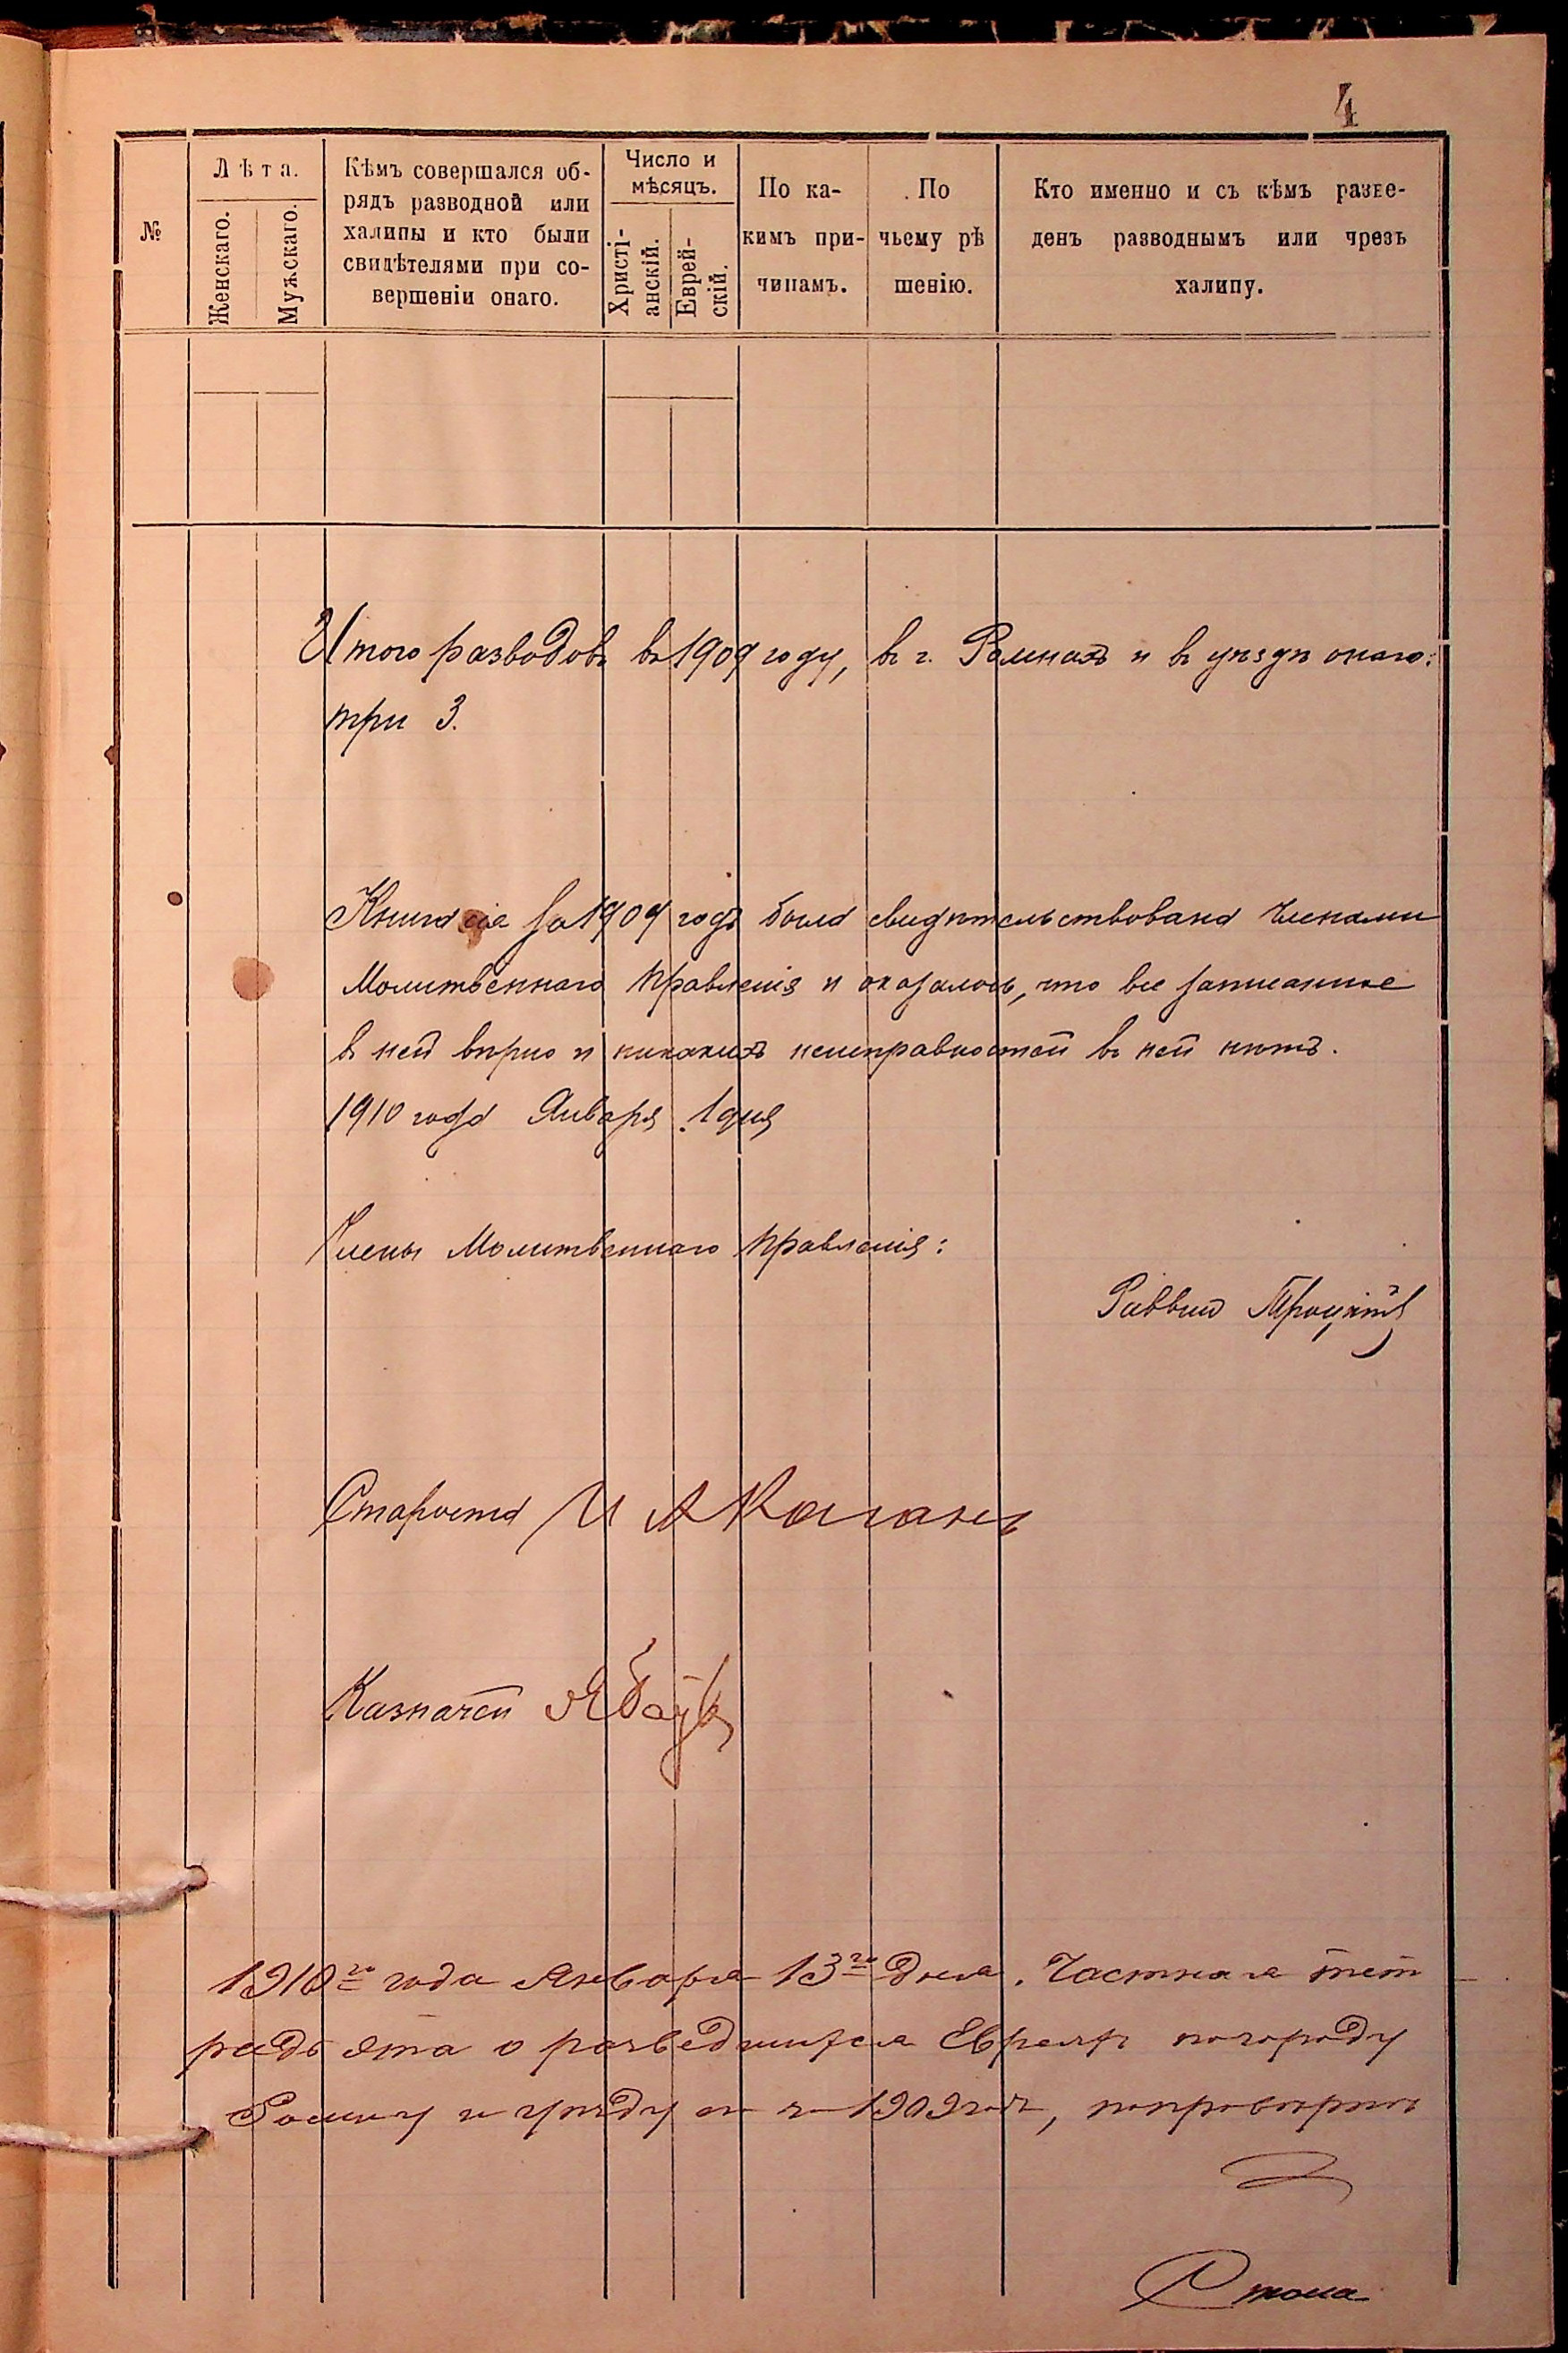 4
№
Лѣта.
Женскаго.
Мужскаго.
Кѣмъ совершался об-
рядъ разводной или
халицы и кто были
свидѣтелями при со-
вершеніи онаго.
Число и
мѣсяцъ.
Христі-
анскій.
Еврей-
скій.
По ка-
кимъ при-
чинамъ.
По
чьему рѣ
шенію.
Кто именно и съ кѣмъ разве-
денъ разводнымъ или чрезъ
халицу.
Итого разводовъ въ 1909 году, въ г. Ромнахъ и въ уѣздѣ онаго:
три 3.
Книга сія за 1909 годъ была свидѣтельствована Членами
Молитвеннаго Правленія и оказалось, что все записанное
въ ней вѣрно и никакихъ неисправностей въ ней нѣтъ.
1910 года Января 1 дня
Члены Молитвеннаго Правленія:
Раввин Троцкій
Староста И А Каганъ
Казначей
1910го года Января 13го Дня. Частная тет
радь эта о разведшихся Евреяхъ по городу
Ромну и уѣзду за 1909 годъ,